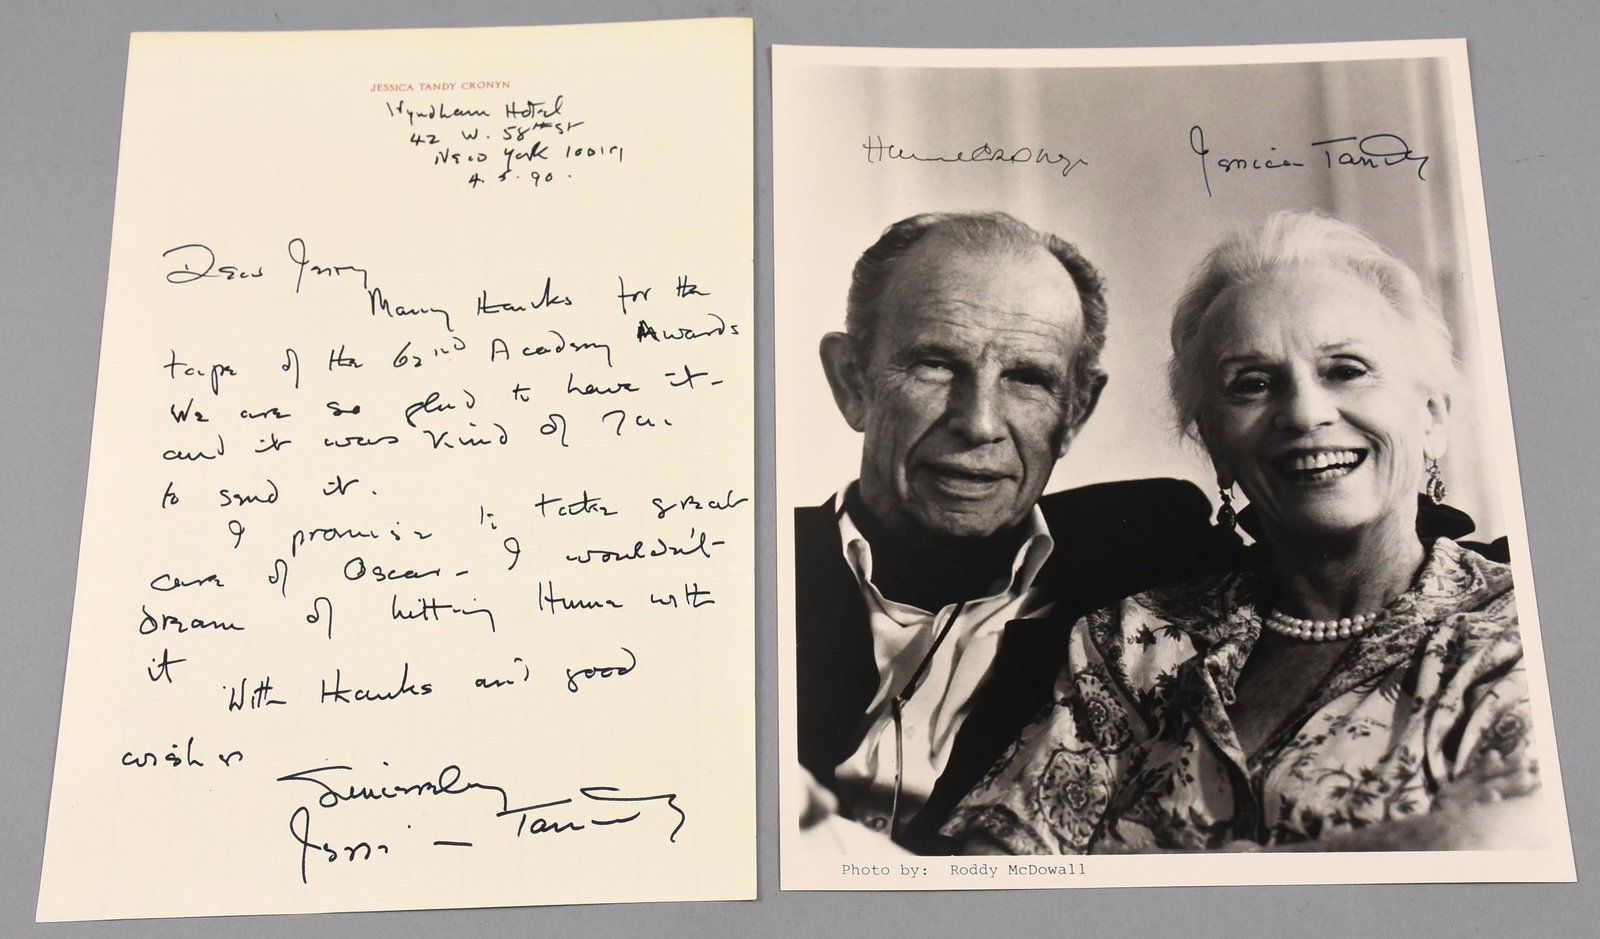 JESSICA TANDY CRONYN
Wyndham Hotel
42 W. 58th St
New York 10019
4.5.90.
Dear Jerry
Many thanks for the
tape of the 62nd Academy Awards
We are so glad to have it-
and it was kind of you
to send it.
I promise to take great
care of Oscar - I wouldn't
dream of hitting Hume with
it
With thanks and good
wishes
Sincerely
Jessica Tandy
Hume Cronyn
Jessica Tandy
Photo by: Roddy McDowall